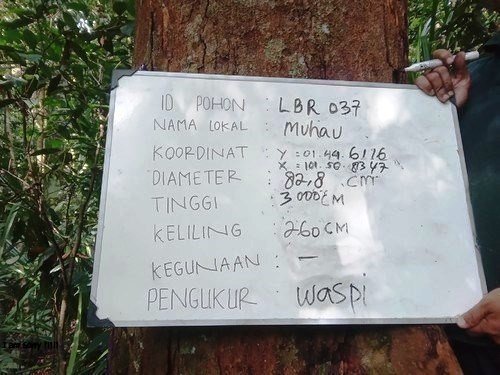 ID POHON : LBR 037
NAMA LOKAL : Muhau
KOORDINAT : Y = 01.44.6116
X = 101.50.8347
DIAMETER : 82,8 CM
TINGGI : 3000 CM
KELILING : 260 CM
KEGUNAAN : –
PENGUKUR : waspi